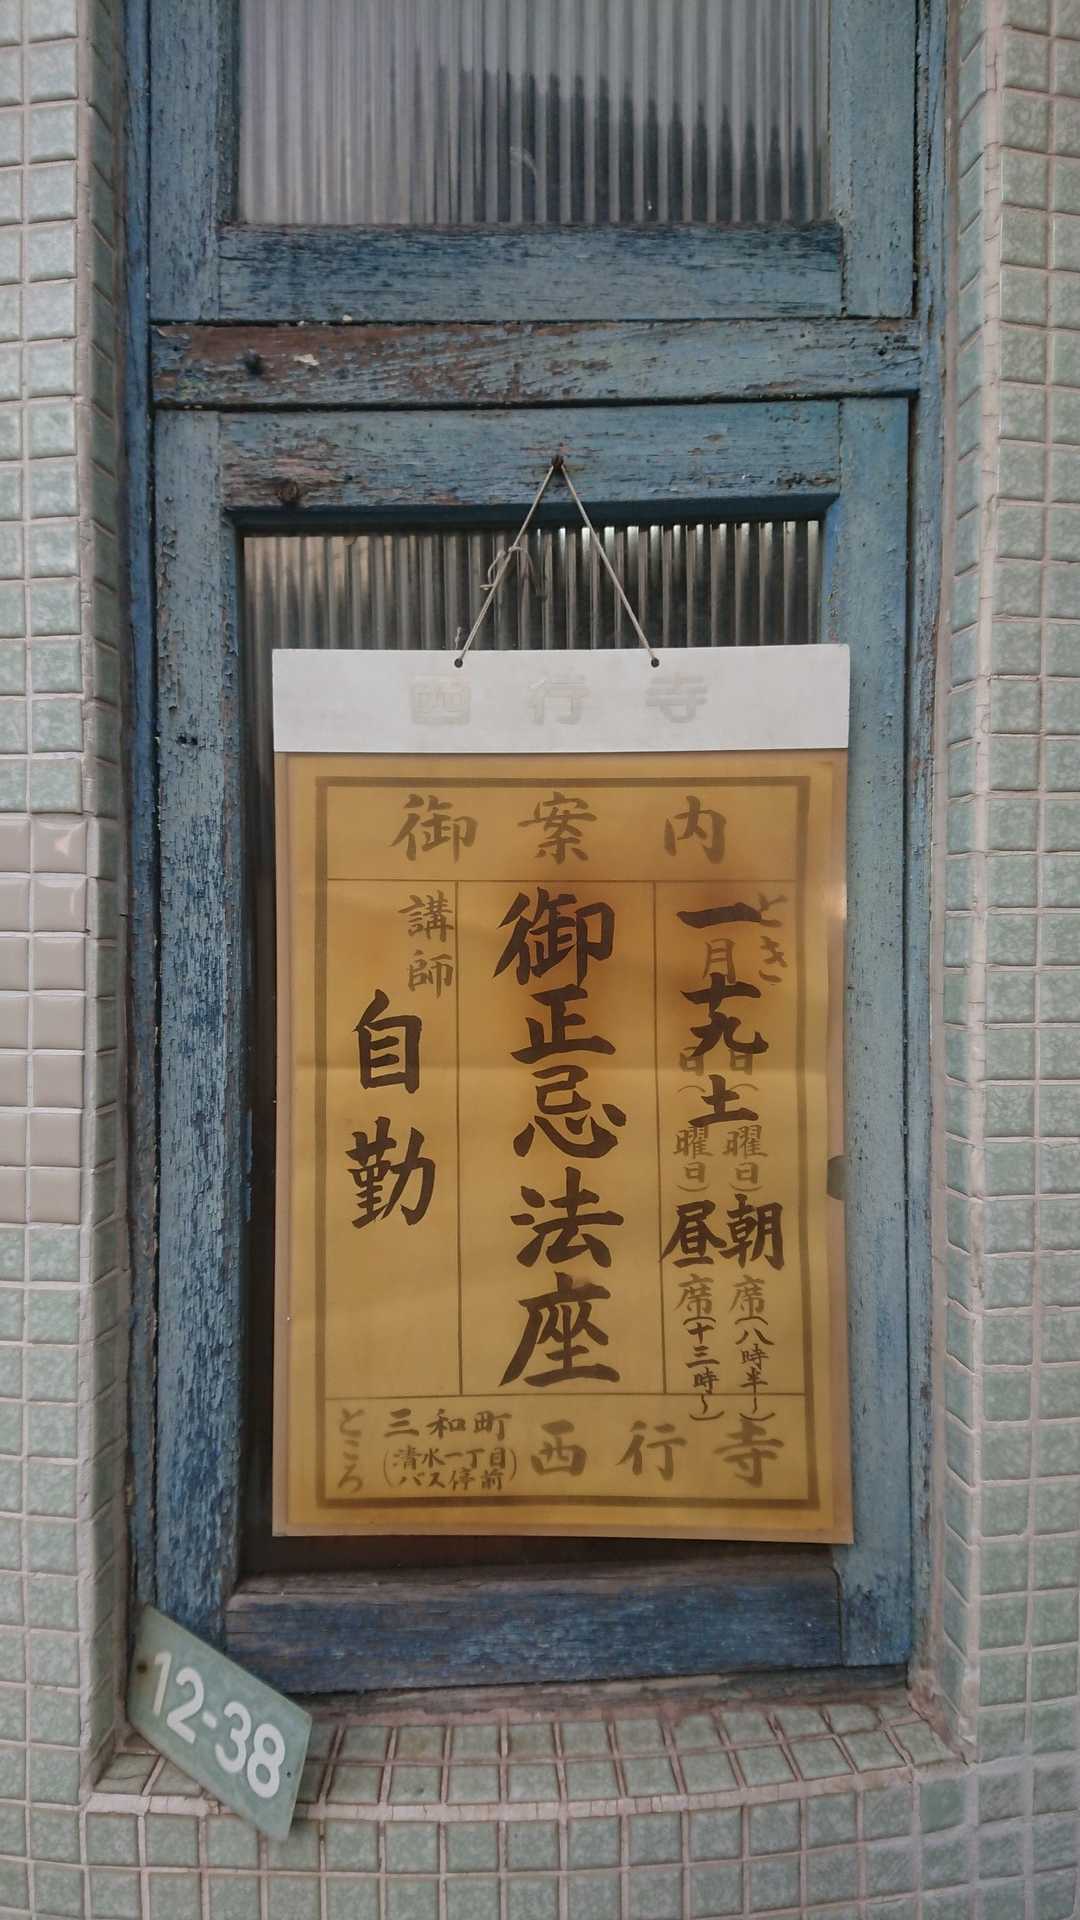 西行寺
御案内
とき
一月十九日(土曜日)朝席(八時半~)
日(曜日)昼席(十三時~)
御正忌法座
講師
自勤
ところ
三和町
(清水一丁目
バス停前)
西行寺
12-38